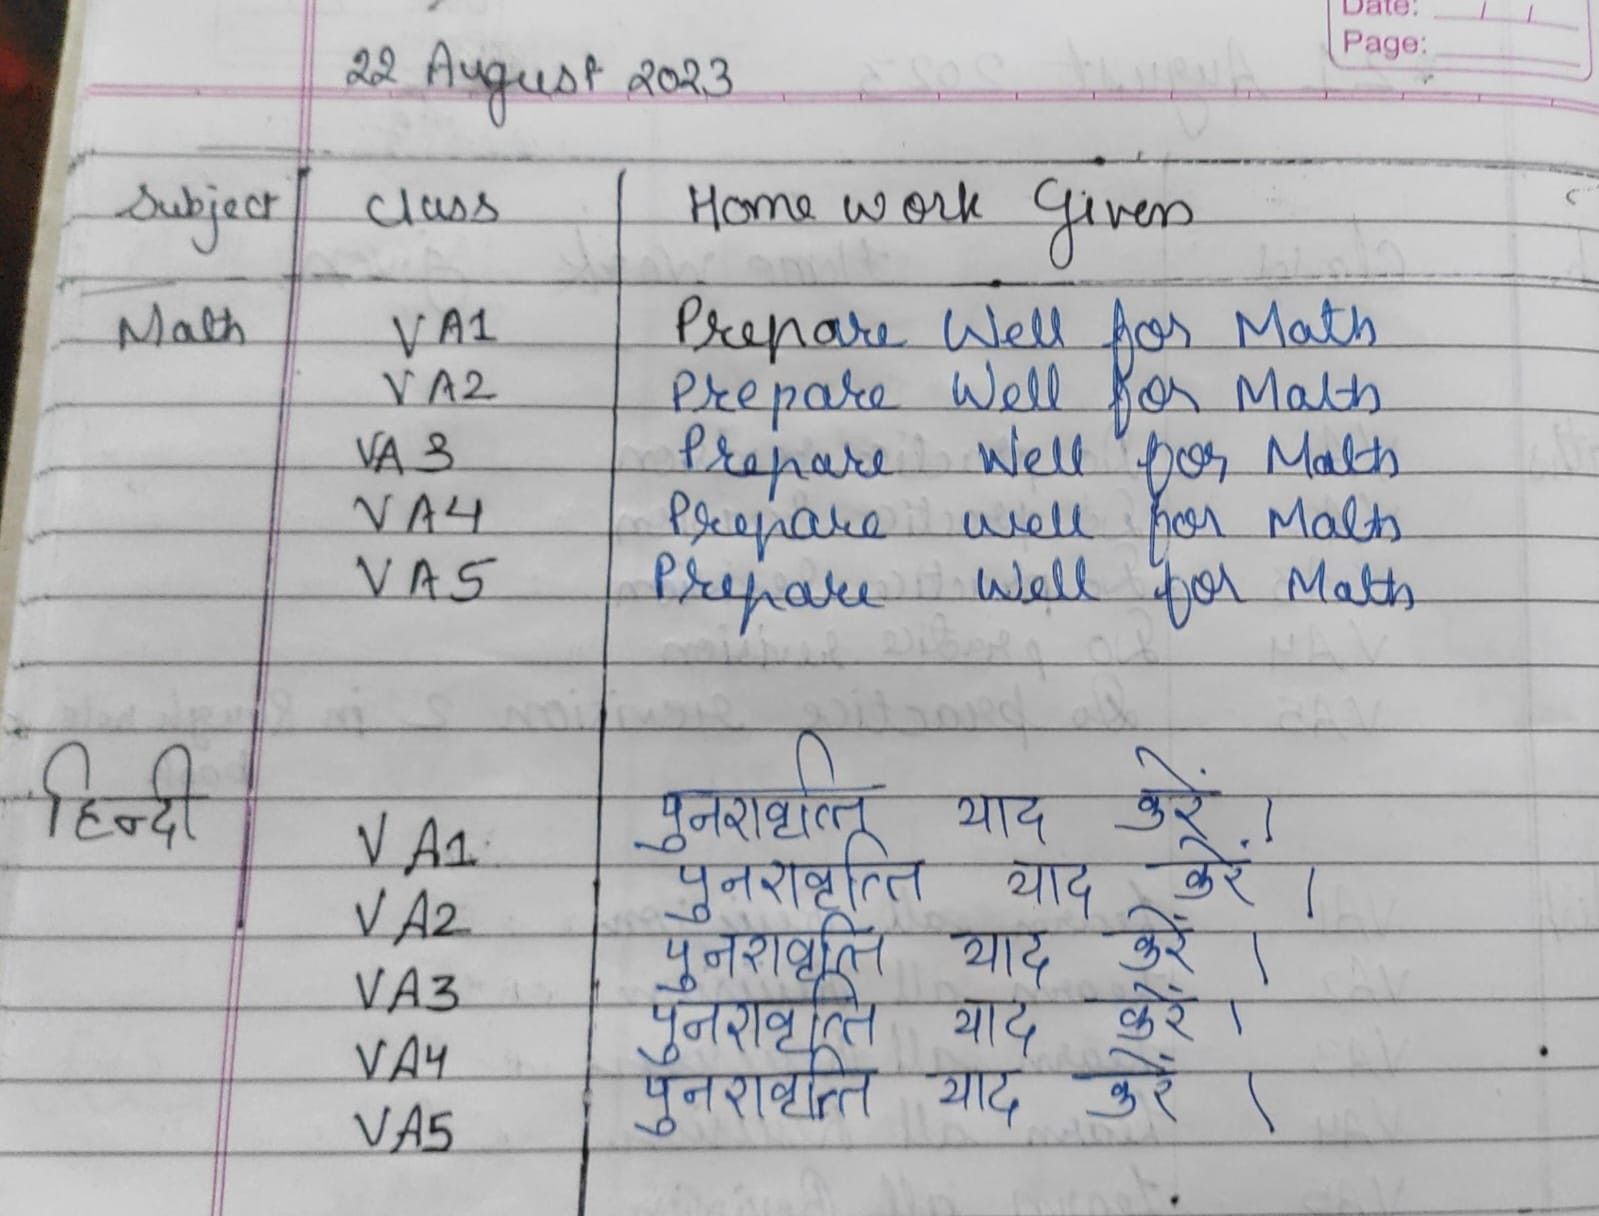 Date: / /
Page:
22 August 2023
Subject Class Home work Given
Math VA1 Prepare Well for Math
VA2 Prepare Well for Math
VA3 Prepare Well for Math
VA4 Prepare well for Math
VA5 Prepare Well for Math
हिन्दी VA1 पुनरावृत्ति याद करें ।
VA2 पुनरावृत्ति याद करें ।
VA3 पुनरावृत्ति याद करें ।
VA4 पुनरावृत्ति याद करें ।
VA5 पुनरावृत्ति याद करें ।